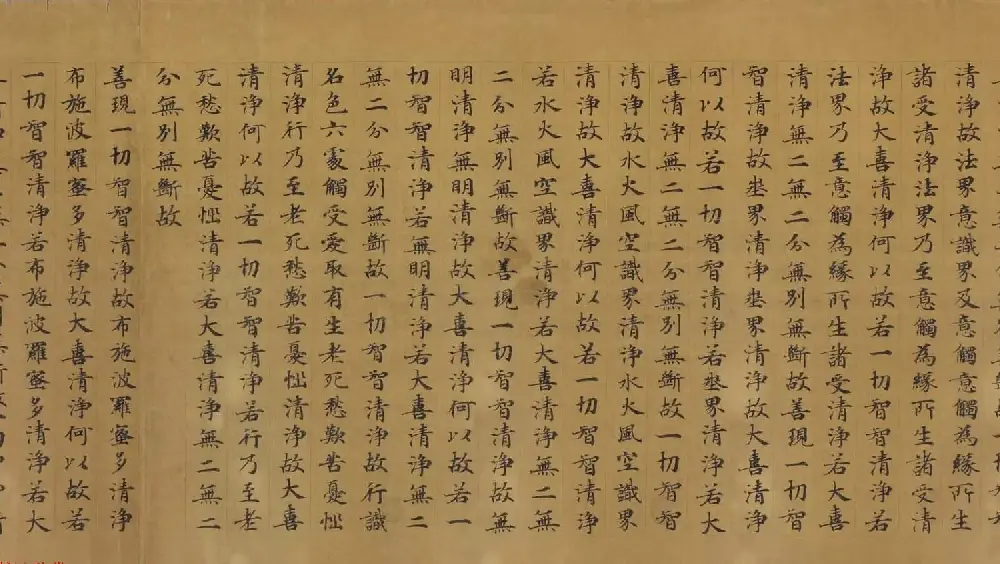 清淨故法界意識界及意觸意觸為緣所生
諸受清淨法界乃至意觸為緣所生諸受清
淨故大喜清淨何以故若一切智智清淨若
法界乃至意觸為緣所生諸受清淨若大喜
清淨無二無二分無別無斷故善現一切智
智清淨故埊界清淨埊界清淨故大喜清淨
何以故若一切智智清淨若埊界清淨若大
喜清淨無二無二分無別無斷故一切智智
清淨故水火風空識界清淨水火風空識界
清淨故大喜清淨何以故若一切智智清淨
若水火風空識界清淨若大喜清淨無二無
二分無別無斷故善現一切智智清淨故無
明清淨無明清淨故大喜清淨何以故若一
切智智清淨若無明清淨若大喜清淨無二
無二分無別無斷故一切智智清淨故行識
名色六處觸受愛取有生老死愁歎苦憂惱
清淨行乃至老死愁歎苦憂惱清淨故大喜
清淨何以故若一切智智清淨若行乃至老
死愁歎苦憂惱清淨若大喜清淨無二無二
分無別無斷故
善現一切智智清淨故布施波羅蜜多清淨
布施波羅蜜多清淨故大喜清淨何以故若
一切智智清淨若布施波羅蜜多清淨若大